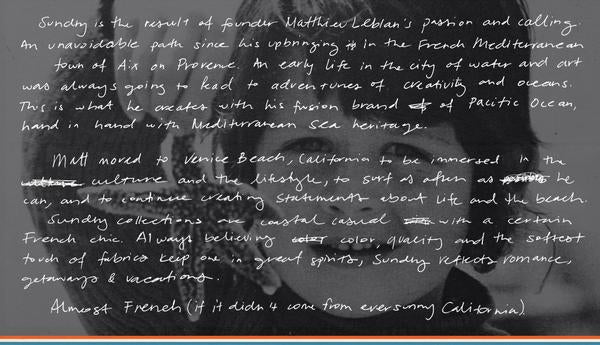 Sundry is the result of founder Matthieu Leblan's passion and calling.
An unavoidable path since his upbringing in the French Mediterranean
town of Aix on Provence. An early life in the city of water and art
was always going to lead to adventures of creativity and oceans.
This is what he creates with his fusion brand of Pacific Ocean,
hand in hand with Mediterranean Sea heritage.
Matt moved to Venice Beach, California to be immersed in the
culture and the lifestyle, to surf as often as he
can, and to continue creating statements about life and the beach.
Sundry collections are coastal casual with a certain
French chic. Always believing color, quality and the softest
touch of fabrics keep one in great spirits, Sundry reflects romance,
getaways & vacations.
Almost French (if it didn't come from ever sunny California).